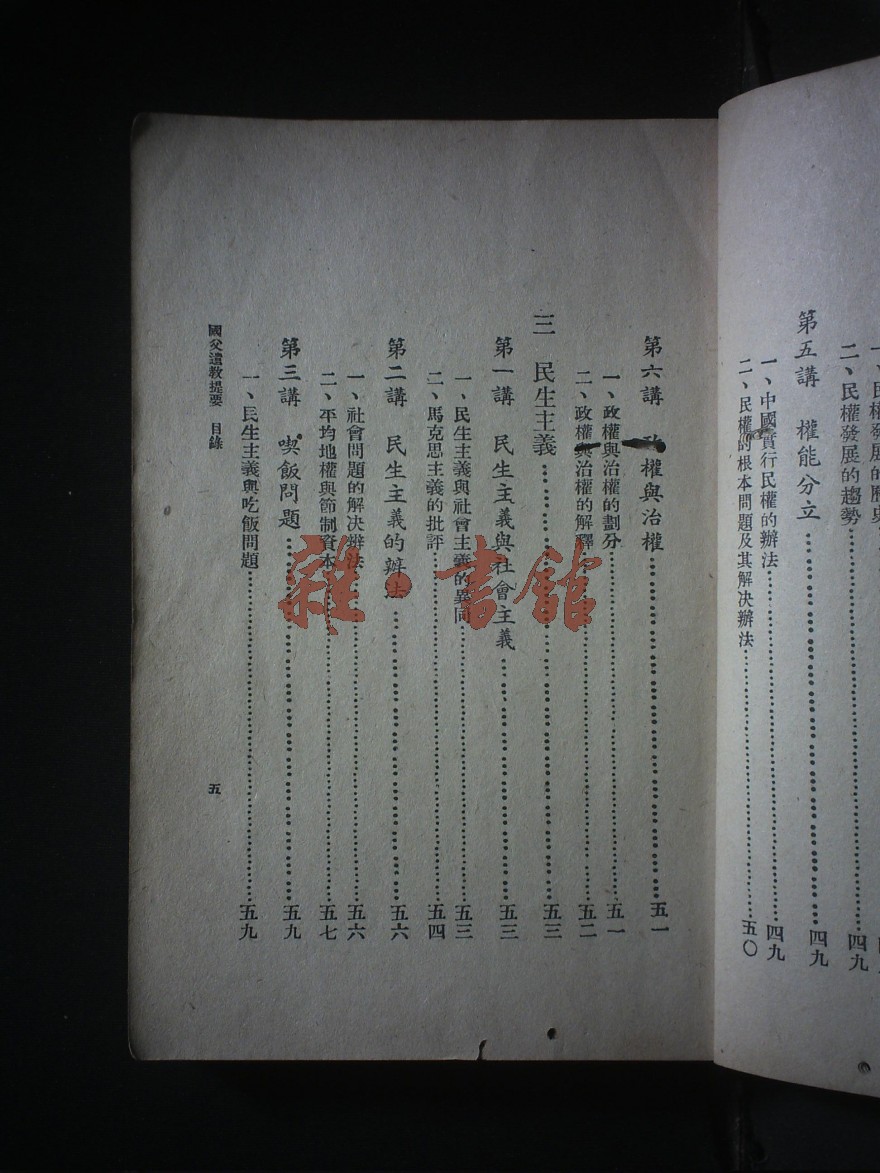 二、民權發展的趨勢……四九
第五講　權能分立……四九
一、中國實行民權的辦法……四九
二、民權的根本問題及其解决辦法……五〇
第六講　政權與治權……五一
一、政權與治權的劃分……五一
二、政權與治權的解釋……五二
三　民生主義……五三
第一講　民生主義與社會主義……五三
一、民生主義與社會主義的異同……五三
二、馬克思主義的批評……五四
第二講　民生主義的辦法……五六
一、社會問題的解决辦法……五六
二、平均地權與節制資本……五七
第三講　喫飯問題……五九
一、民生主義與吃飯問題……五九
國父遺教提要　目錄
五
雜·書館